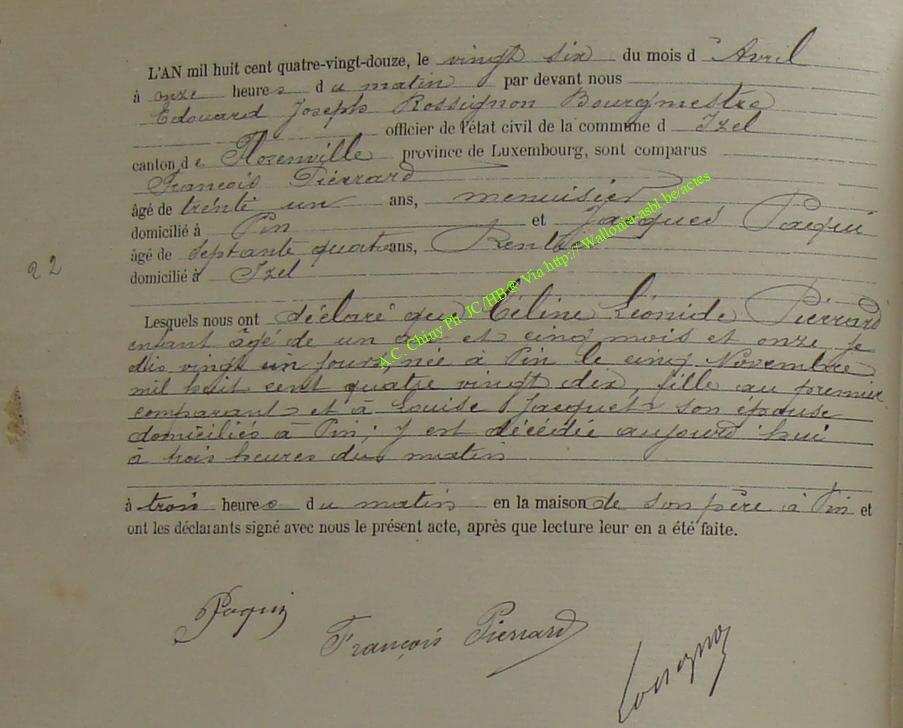 L'AN mil huit cent quatre-vingt-douze, le vingt six du mois d' Avril
à onze heures du matin par devant nous
Edouard Joseph Rossignon Bourgmestre
officier de l'état civil de la commune d Izel
canton de Florenville province de Luxembourg, sont comparus
François Pierrard
âgé de trente un ans, menuisier
domicilié à Pin et Jacques Paquis
âgé de septante quatre ans, Rentier
domicilié à Izel
22
Lesquels nous ont déclaré que Céline Léonide Pierrard
enfant âgé de un an et cinq mois et onze je
dis vingt un jours, né à Pin le cinq Novembre
mil huit cent quatre vingt dix, fille au premier
comparant et à Louise Jacquet son épouse
domiciliés à Pin, y est décédée aujourd'hui
à trois heures du matin
à trois heures du matin en la maison de son père à Pin et
ont les déclarants signé avec nous le présent acte, après que lecture leur en a été faite.
Paquis
François Pierrard
A.C. Chiny Ph. JC/HB @ Via http://Wallonia-asbl.be/actes